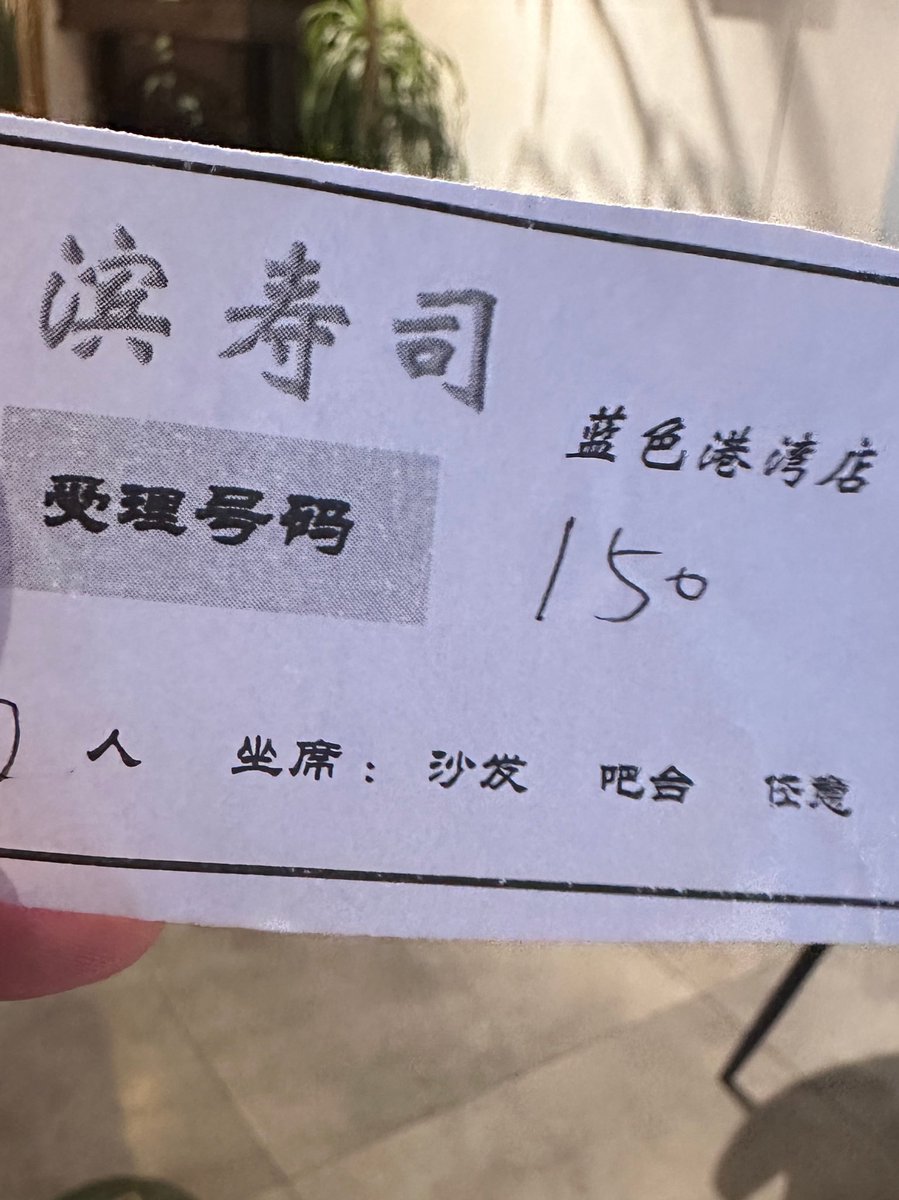 滨寿司
蓝色港湾店
受理号码
150
人 坐席：沙发 吧台 任意